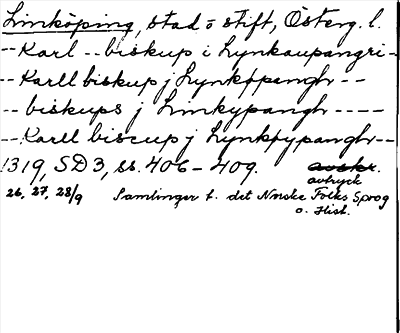 Linköping, stad o stift, Österg. l.
-- Karl -- biskup i Lynkaupangri --
-- Karll biskup j Lynkøpangh --
-- biskups j Linkypangh ----
-- Karll biscup j Lynkøypangh --
1319, SD 3, ss. 406 - 409. avskr.
avtryck
26, 27, 28/9 Samlinger t. det Norske Folks Sprog
o. Hist.